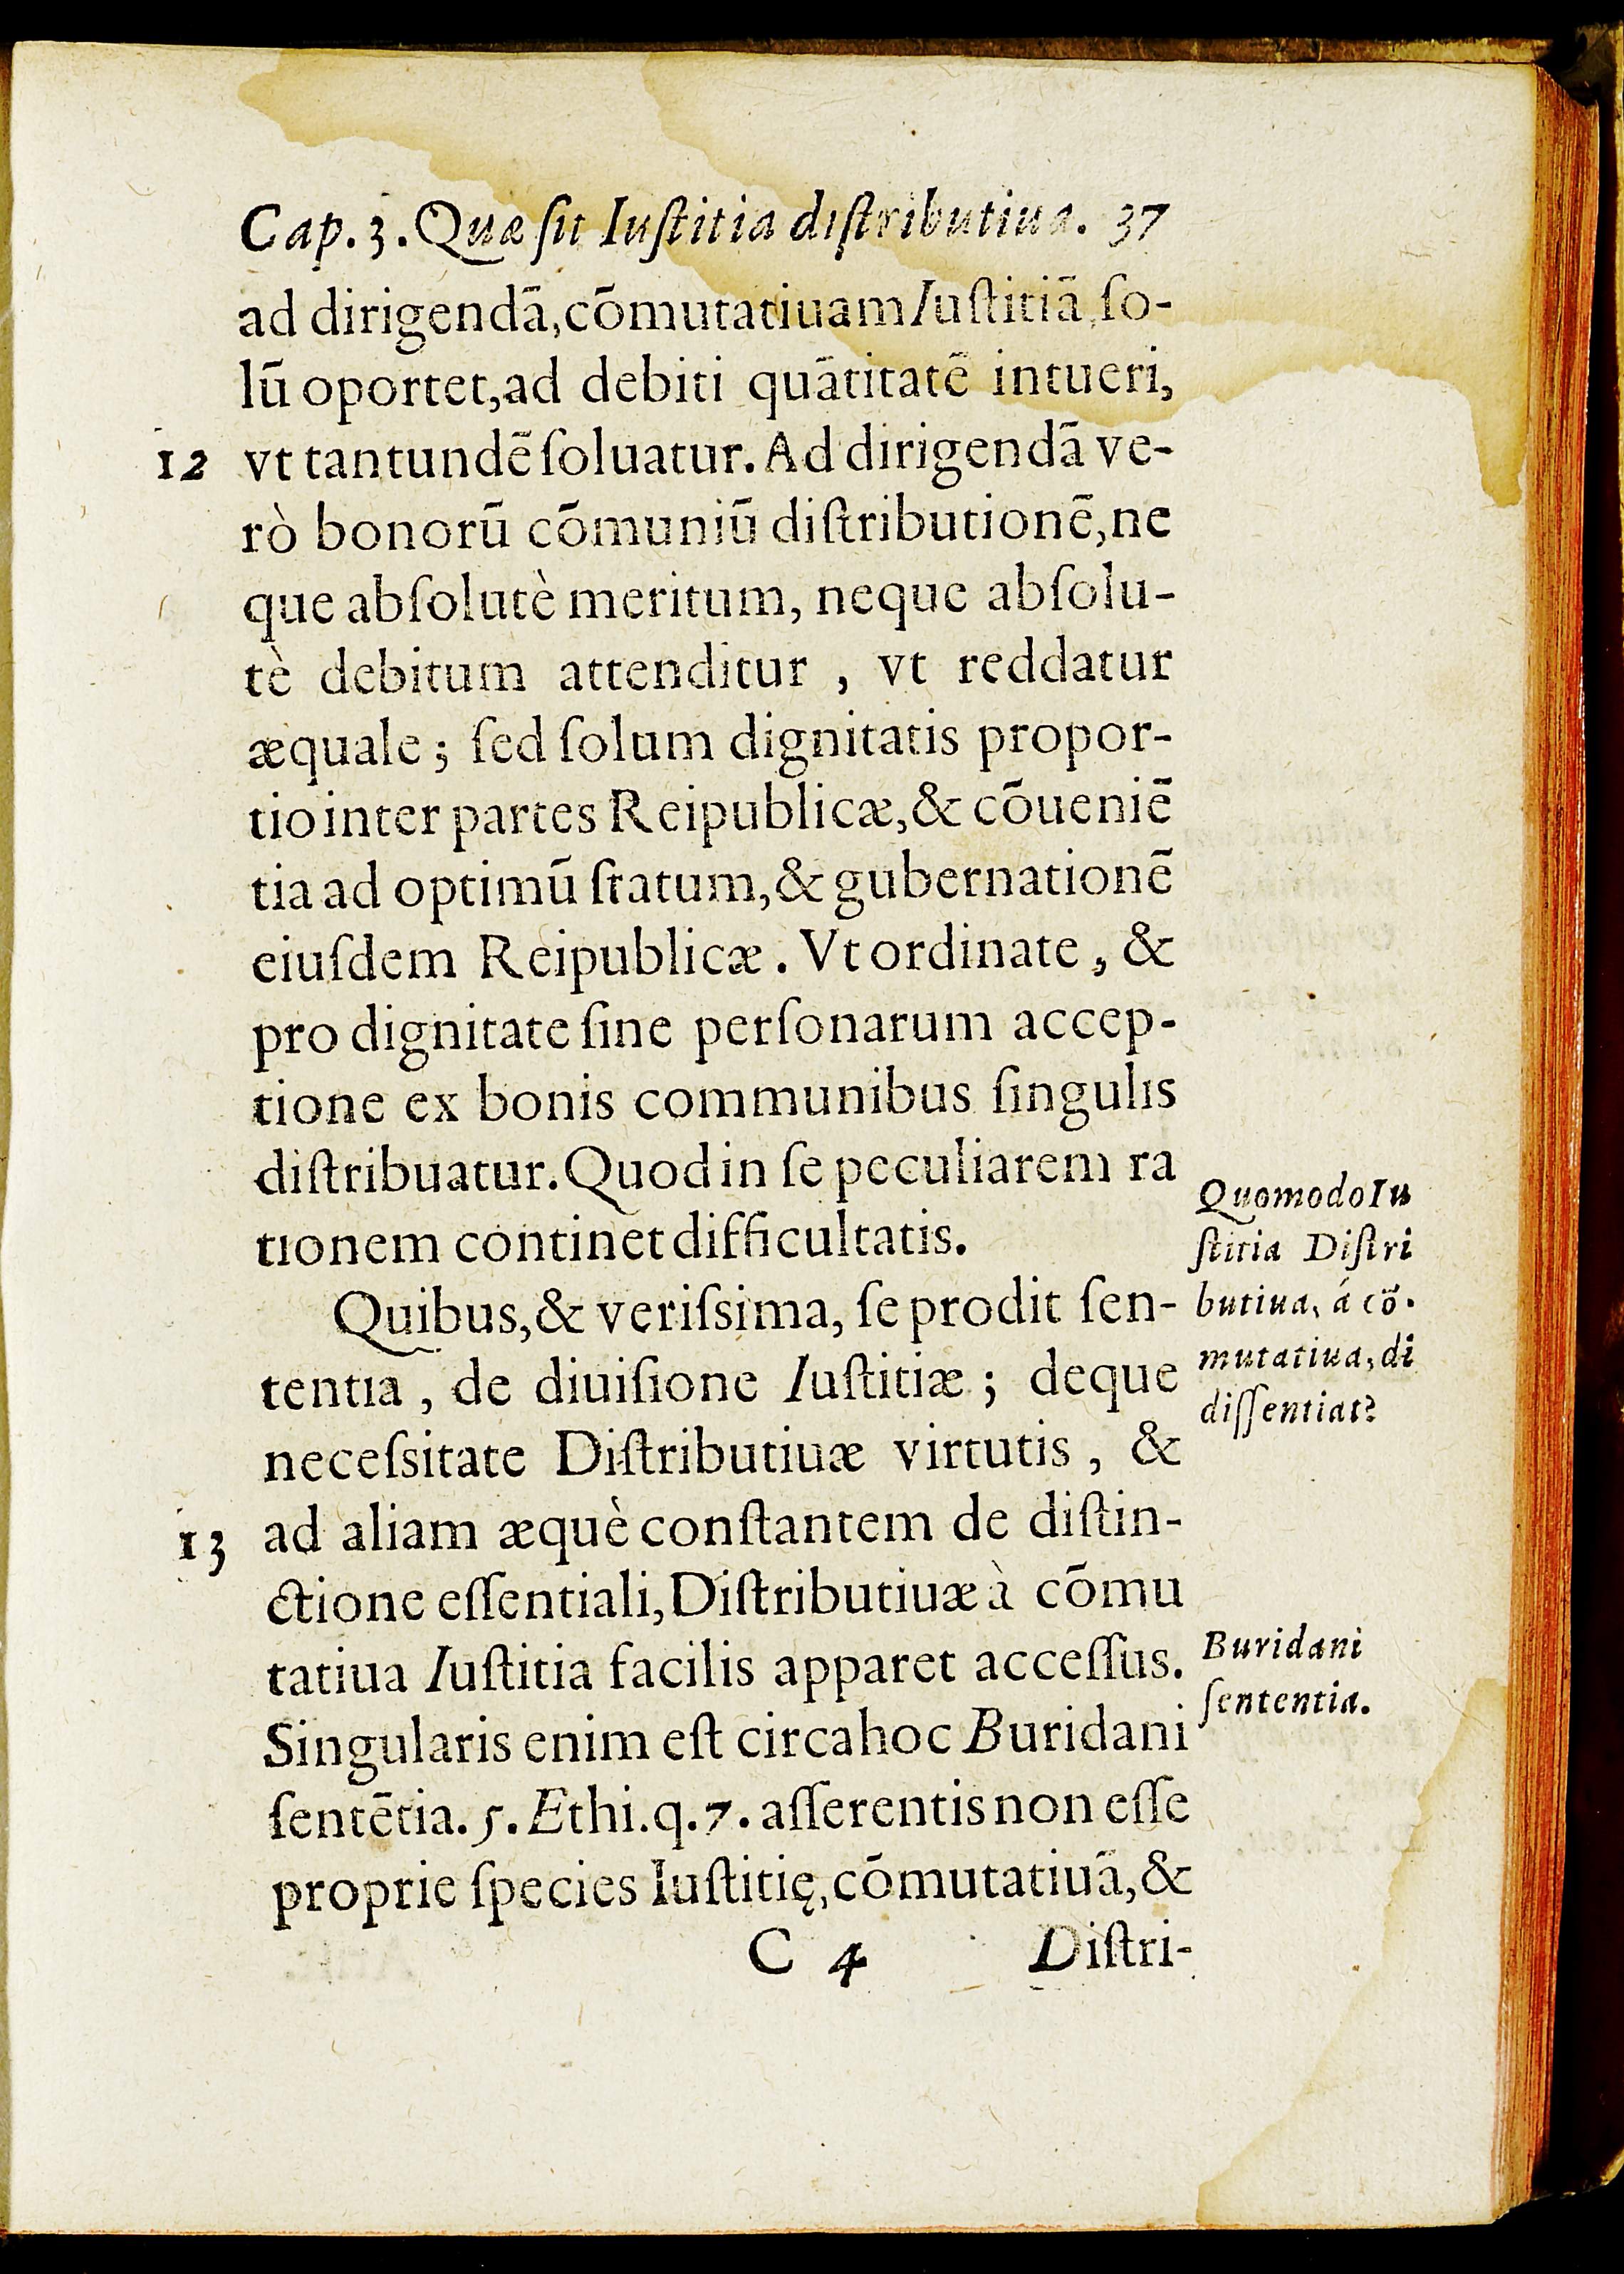 Cap. 3. Quæ ſit Iuſtitia diſtributiua. 37
ad dirigendā, cōmutatiuam Iuſtitiā, ſo-
lū oportet, ad debiti quātitatē intueri,
12 vt tantundē ſoluatur. Ad dirigendā ve-
rò bonorū cōmuniū diſtributionē, ne
que abſolutè meritum, neque abſolu-
tè debitum attenditur, vt reddatur
æquale; ſed ſolum dignitatis propor-
tio inter partes Reipublicæ, & cōueniē
tia ad optimū ſtatum, & gubernationē
eiuſdem Reipublicæ. Vt ordinate, &
pro dignitate ſine perſonarum accep-
tione ex bonis communibus ſingulis
diſtribuatur. Quod in ſe peculiarem ra
tionem continet difficultatis.
Quibus, & veriſsima, ſe prodit ſen-
tentia, de diuiſione Iuſtitiæ; deque
neceſsitate Diſtributiuæ virtutis, &
13 ad aliam æquè conſtantem de diſtin-
ctione eſſentiali, Diſtributiuæ à cōmu
tatiua Iuſtitia facilis apparet acceſſus.
Singularis enim eſt circa hoc Buridani
ſentētia. 5. Ethi. q. 7. aſſerentis non eſſe
proprie ſpecies Iuſtitię, cōmutatiuā, &
C 4 Diſtri-
Quomodo Iu
ſtitia Diſtri
butiua, á cō.
mutatiua, di
diſſentiat?
Buridani
ſententia.